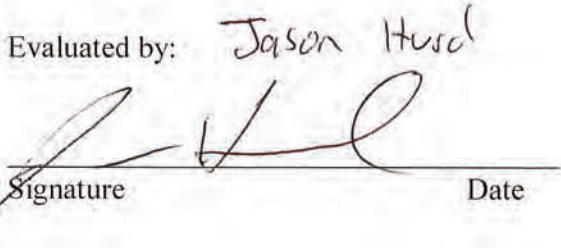 Evaluated by: Jason Hurd
Signature Date